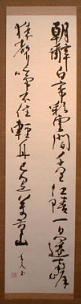 朝辭白帝彩雲間千里江陵一日還兩岸
猿聲啼不住輕舟已過萬重山